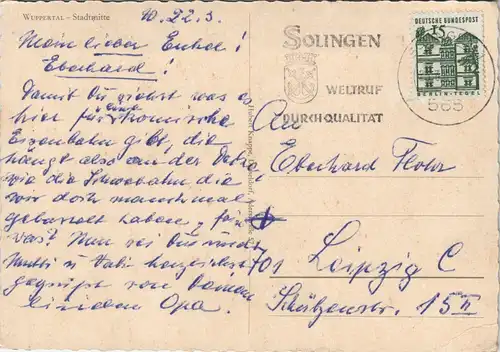 WUPPERTAL – Stadtmitte
D. 22.3.
Mein lieber Enkel!
Eberhard!
Damit Du siehst was es
hier für eine komische
Eisenbahn gibt, die
hängt also an der
wie die Schwebebahn die
wir doch manchmal
haben,
was? Nun sei Du und
Mutti u Vati herzlichst
gegrüßt von Deinem
lieben Opa.
SOLINGEN
WELTRUF
DURCH QUALITÄT
DEUTSCHE BUNDESPOST
15
BERLIN-TEGEL
565
An
Eberhard
701 Leipzig C
Schützenstr. 15 II